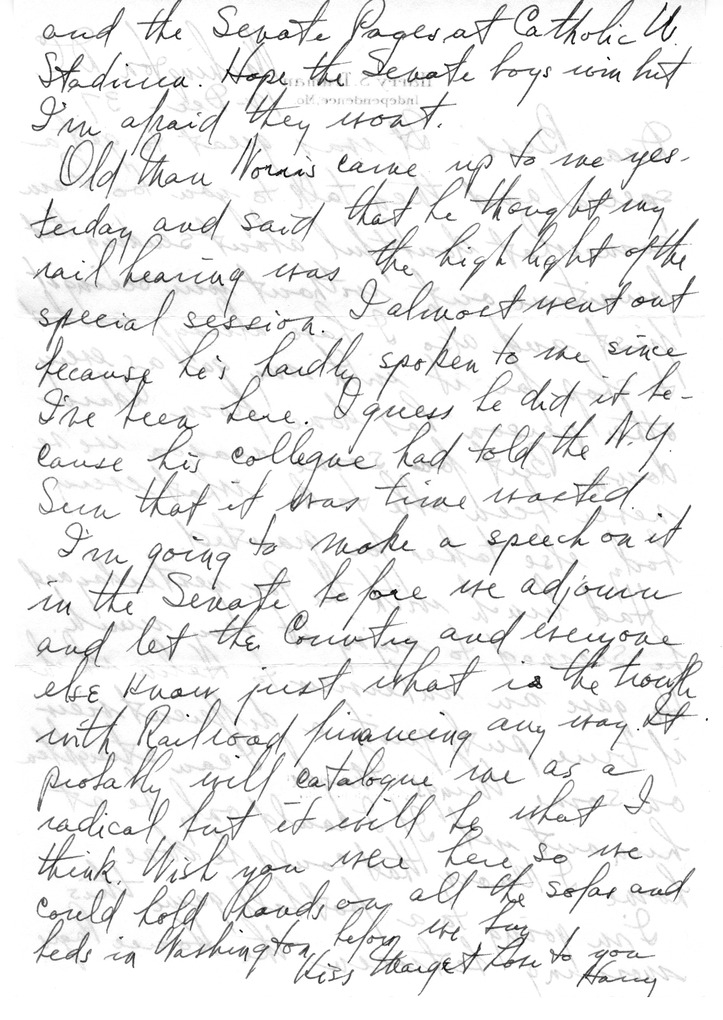 and the Senate Pages at Catholic U.
Stadium. Hope the Senate boys win but
I'm afraid they wont.
Old Man Norris came up to me yes-
terday and said that he thought my
rail hearing was the high light of the
special session. I almost went out
because he's hardly spoken to me since
I've been here. I guess he did it be-
cause his collegue had told the N.Y.
Sun that it was time wasted.
I'm going to make a speech on it
in the Senate before we adjourn
and let the Country and everyone
else know just what is the trouble
with Railroad financing any way. It
probably will catalogue me as a
radical but it will be what I
think. Wish you were here so we
could hold hands on all the sofas and
beds in Washington before we buy
Kiss Margret love to you
Harry